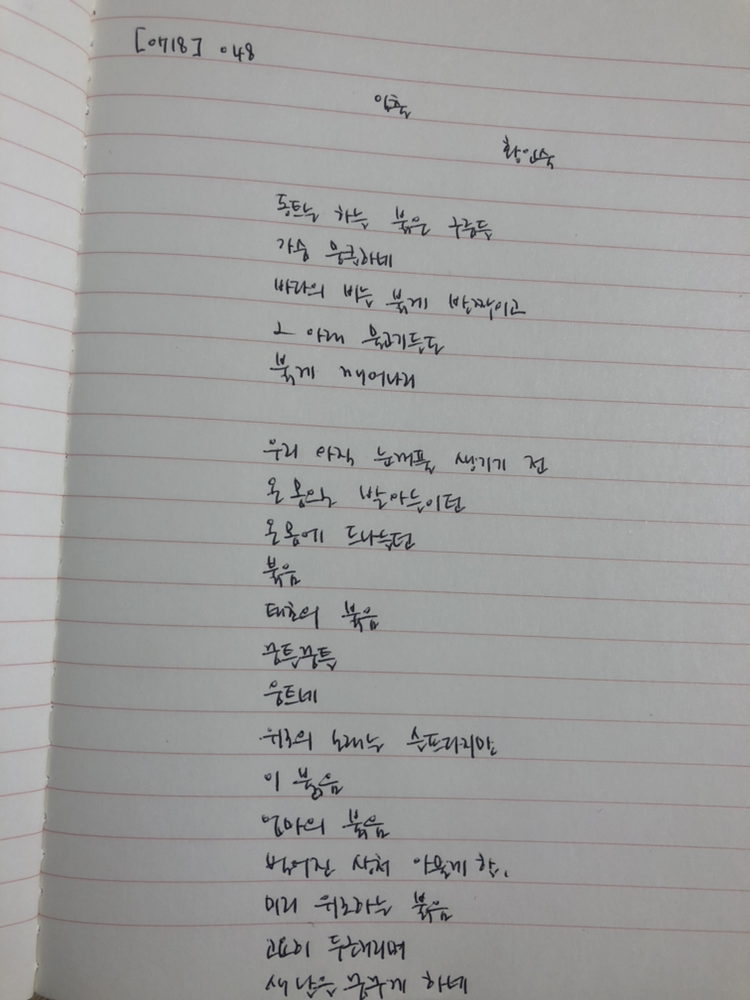 [0718] 048
일출
황인숙
동트는 하늘 붉은 구름들
가슴 뭉클하네
바다의 비늘 붉게 반짝이고
그 아래 물고기들도
붉게 깨어나리
우리 아직 눈꺼풀 생기기 전
온 몸으로 받아들이던
온 몸에 드나들던
붉음
태초의 붉음
꿈틀꿈틀
움트네
위로의 노래는 슬프다지만
이 붉음
엄마의 붉음
벌어진 상처 아물게 할,
미리 위로하는 붉음
고요히 두근대리며
새 날을 꿈꾸게 하네